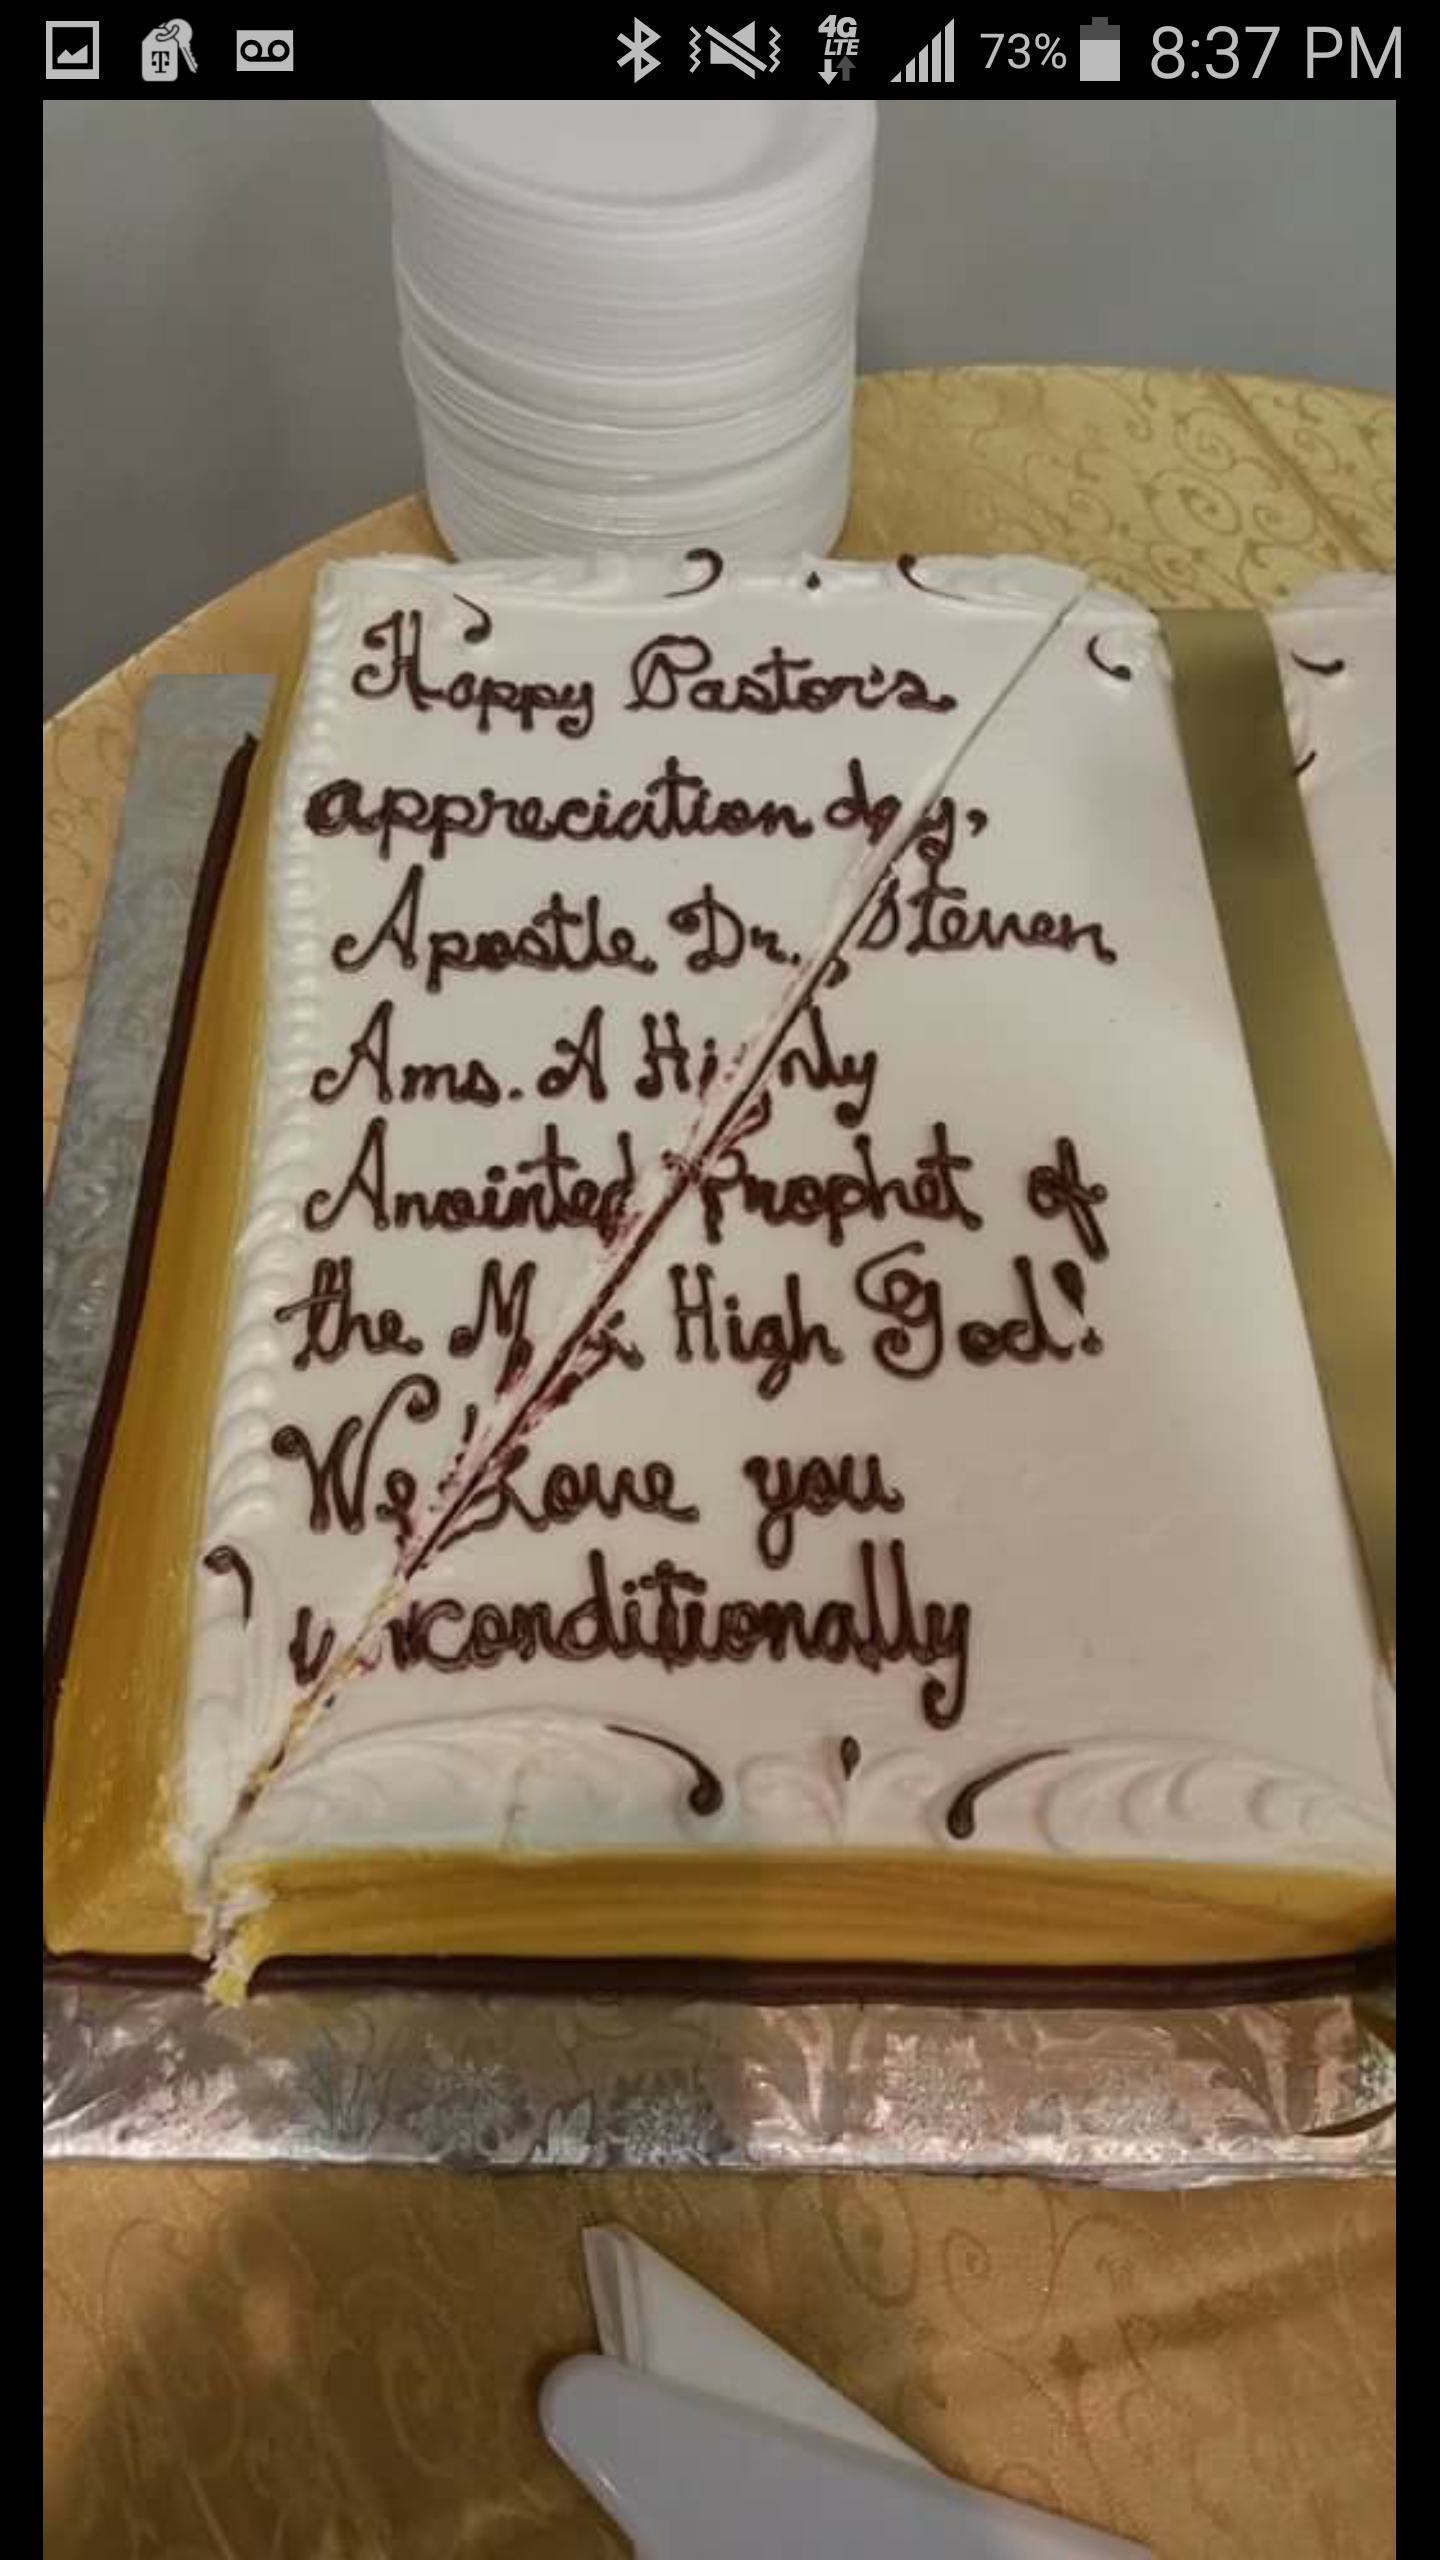 73% 8:37 PM
4G
LTE
T
Happy Pastor's
appreciation day,
Apostle Dr. Steven
Ams. A
Anointed Prophet of
the High God!
We Love you
unconditionally